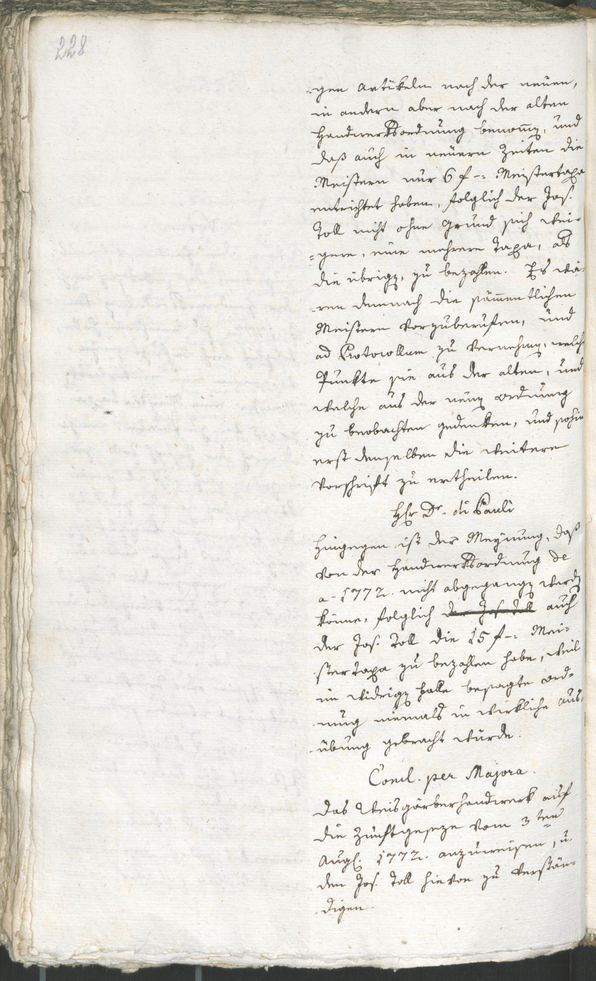 228
gen Artikeln nach der neuen,
in andern aber nach der alten
Handwerksordnung benommen, und
daß auch in neuern Zeiten die
Meistern nur 6 f -: Meistertaxa
entrichtet haben, folglich der Jos.
Toll nicht ohne Grund sich wei-
gere, eine mehrere Taxa, als
die übrigen, zu bezahlen. Es wä-
ren demnach die sämmentlichen
Meistern vorzuberufen, und
ad Protocollum zu vernehmen, welche
Punkte sie aus der alten, und
welche aus der neuen Ordnung
zu beobachten gedenken, und sohin
erst denselben die weitere
Vorschrift zu ertheilen.
Hr Dr. di Pauli
hingegen ist der Meynung, daß
von der Handwerksordnung de
a. 1772. nicht abgegangen werden
könne, folglich der Jos. Toll auch
der Jos. Toll die 15 f -: Mei-
stertaxa zu bezahlen habe, weil
im widrigen Falle besagte Ord-
nung niemals in wirkliche Aus-
übung gebracht würde.
Concl. per Majora.
Das Weisgärberhandwerk auf
die Zunftgesetze vom 3ten
Aug. 1772. anzuweisen, u.
den Jos. Toll hievon zu verstän-
digen.